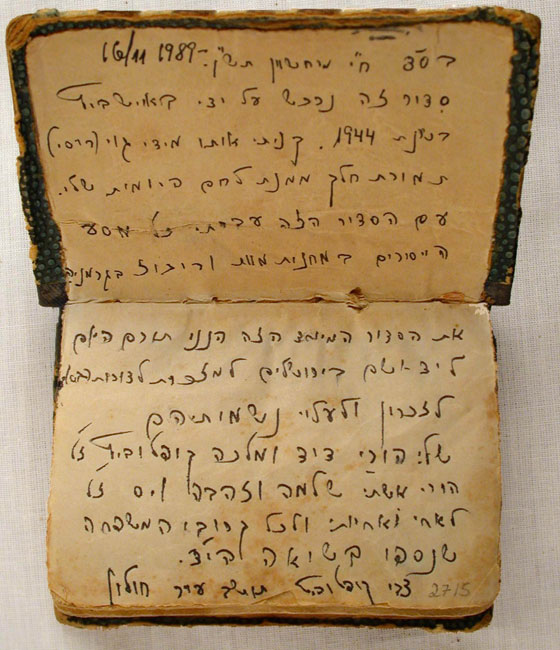 בס"ד ח"י מרחשון תש"ן:- 16/11 1989
סדור זה נרכש על ידי באוישביץ
בשנת 1944. קניתי אותו מידי גוי (רוסי)
תמורת חלק ממנת לחם היומית שלי.
עם הסדור הזה עברתי כל מסע
הייסורים במחנות מוות וריכוז בגרמניה
את הסדור המיוחד הזה הנני תורם היום
ליד ושם בירושלים למזכרת לדורות הבאים
לזכרון ולעלוי נשמותיהם
של: הורי דוד ומלכה קופלוביץ ז"ל
הורי אשתי שלמה וזהבה וייס ז"ל
לאחי ואחיותי ולכל קרובי המשפחה
שנספו בשואה הי"ד.
צבי קופלוביץ תושב עיר חולון 2715